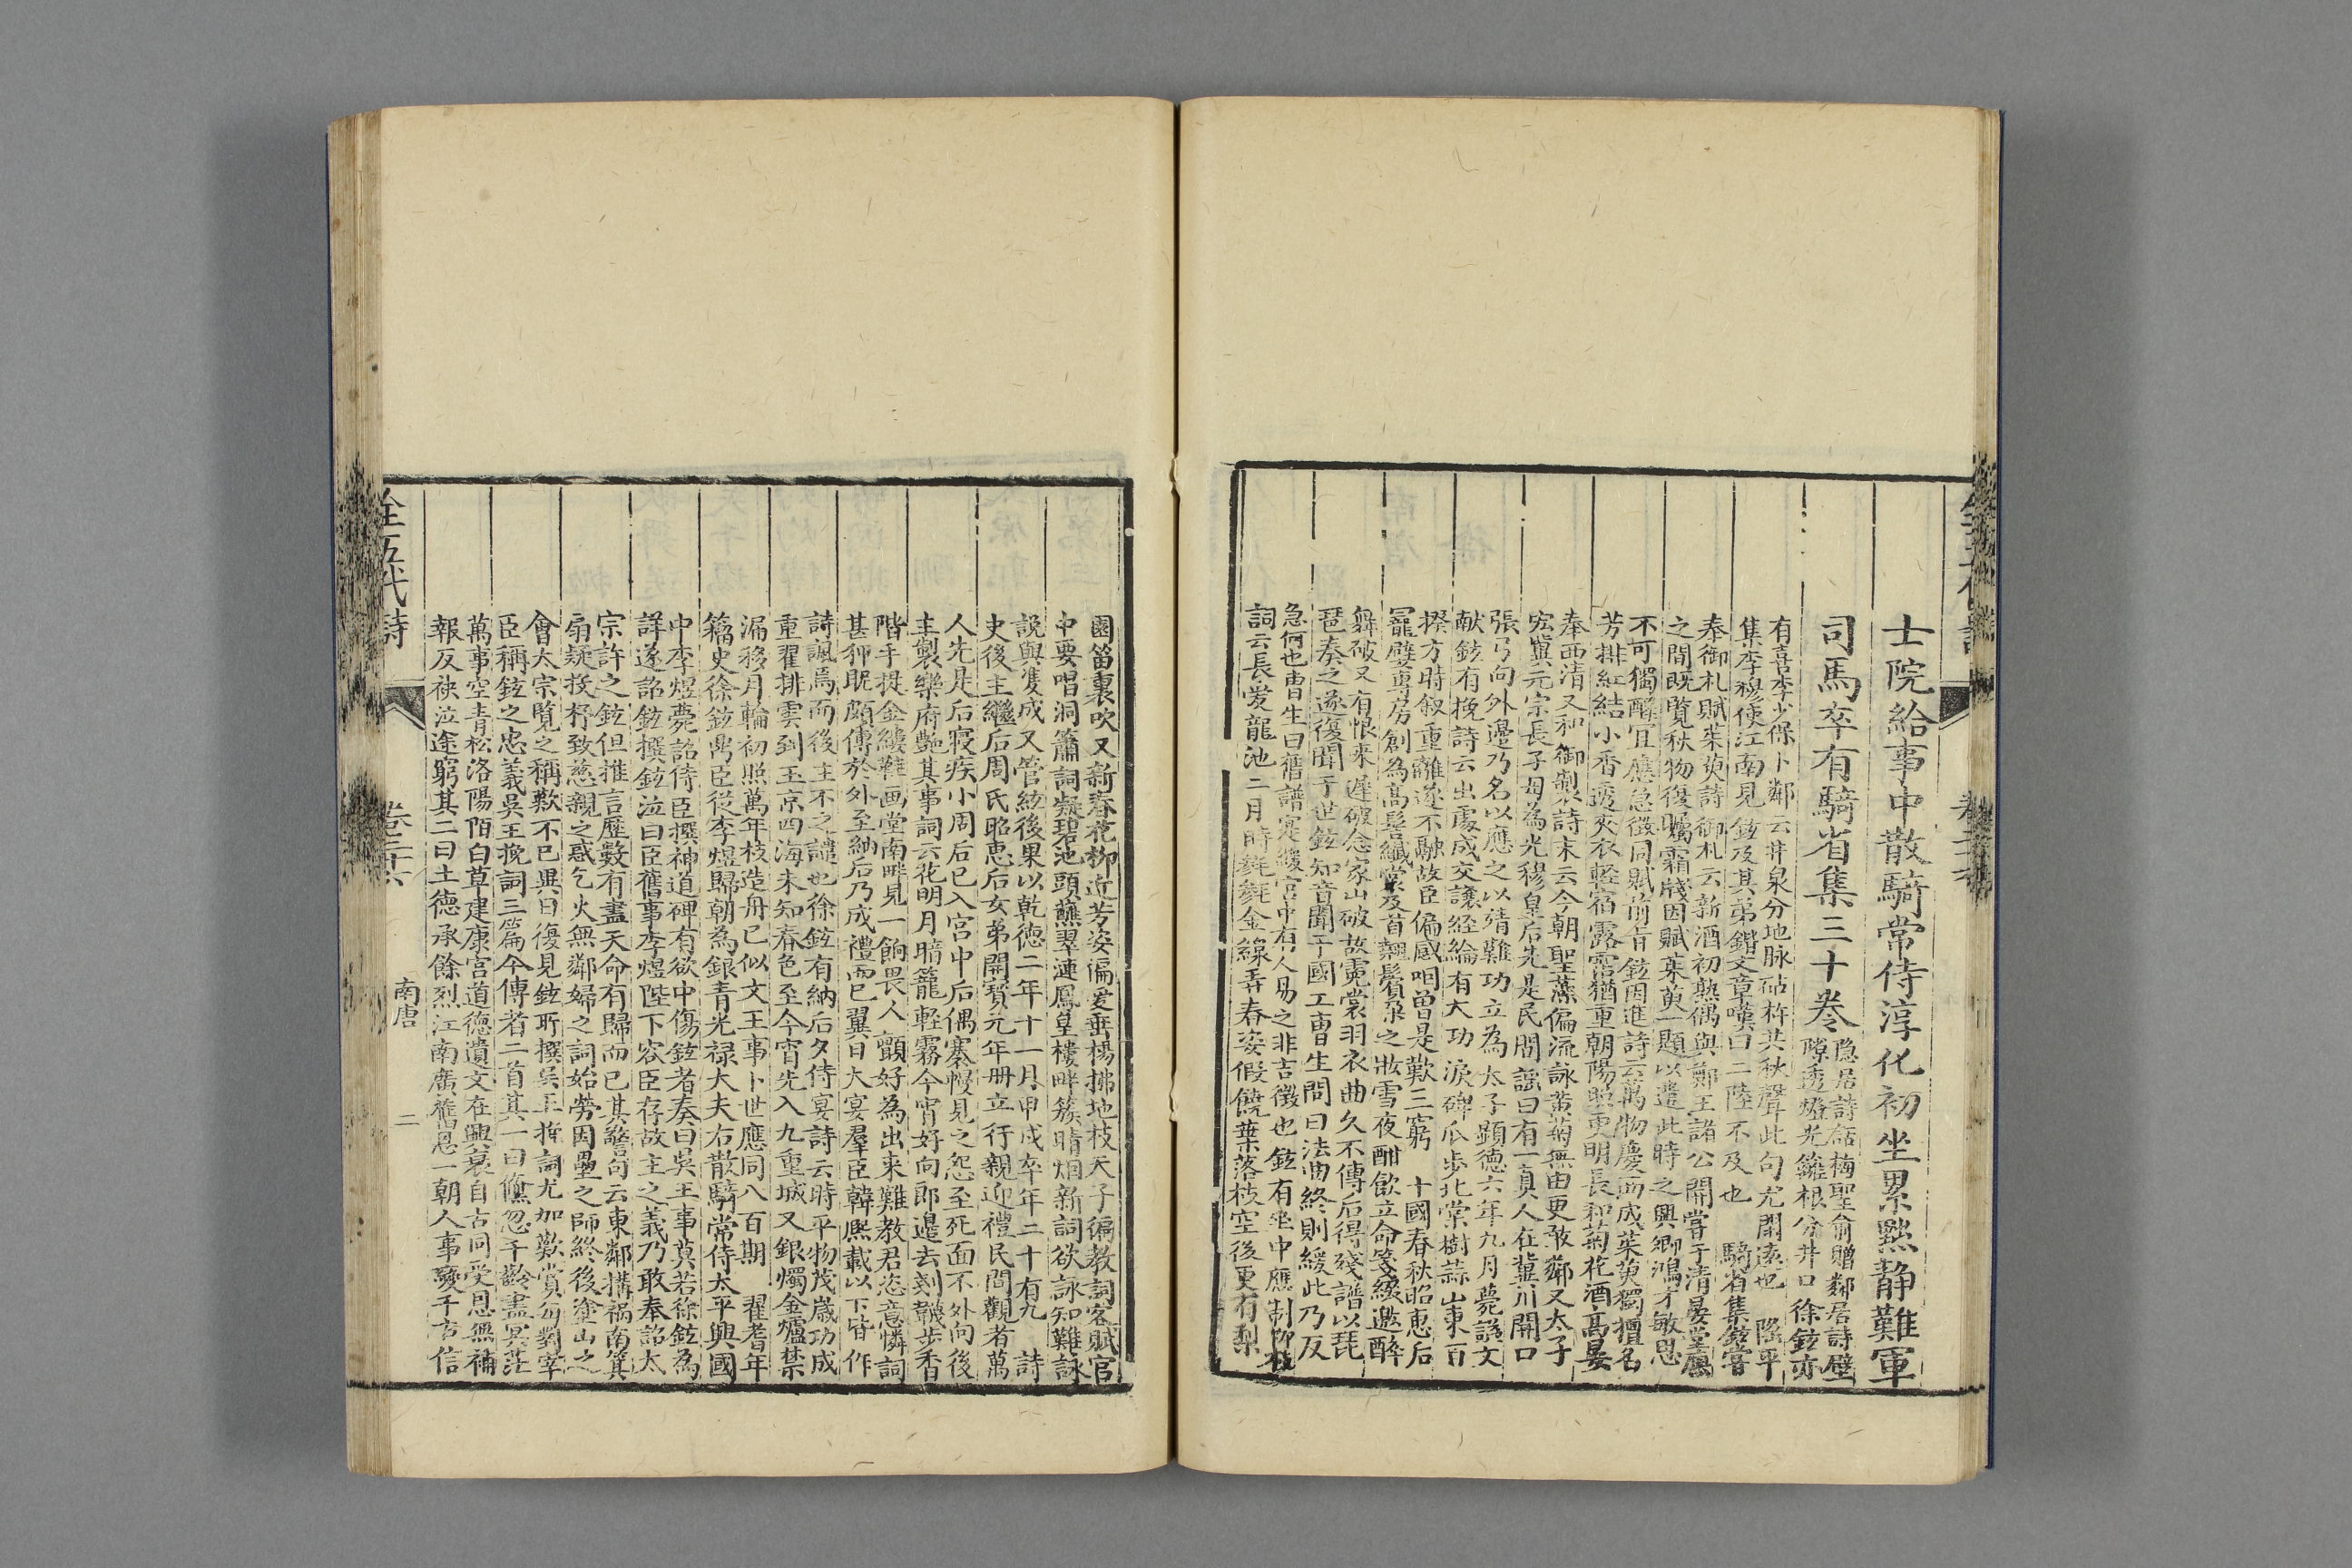 士院給事中散騎常侍淳化初坐累黜静難軍
司馬卒有騎省集三十卷
隐居詩話梅聖俞贈鄰居詩壁
隙透燈光籬根分井口徐鉉亦
有喜李少保卜鄰云井泉分地脉砧杵共秋聲此句尤閒遠也
隆平
集李穆使江南見鉉及其弟鍇文章嘆曰二陸不及也
騎省集鉉嘗
奉御札賦茱萸詩御札云新酒初熟偶與鄭王諸公開嘗于清晏堂廳
之間既覽秋物復矚霜牋因賦茱萸一題以遣此時之興卿鴻才敏思
不可獨醒宜應急徵同賦前旨鉉因進詩云萬物慶西成茱萸獨擅名
芳排紅結小香透夾衣輕宿露霑猶重朝陽照更明長和菊花酒高晏
奉西清又和御製詩末云今朝聖藻偏流詠黄菊無由更敢鄰又太子
宏冀元宗長子母為光穆皇后先是民間謡曰有一真人在冀川開口
張弓向外邊乃名以應之以靖難功立為太子顕德六年九月薨諡文
献鉉有挽詩云出處成交讓経綸有大功淚碑瓜步北棠樹蒜山東百
揆方時叙重離遂不融故臣偏感咽曽是歎三窮
十國春秋昭恵后
寵嬖專房創為髙髻纖裳及首翹鬢朶之妝雪夜酣飲立命箋綴邀醉
舞破又有恨来遲破念家山破故霓裳羽衣曲久不傳后得殘譜以琵
琶奏之遂復聞于世鉉知音聞于國工曹生問曰法曲終則緩此乃反
急何也曹生曰舊譜寔緩宮中有人易之非吉徵也鉉有坐中應制柳枝
詞云長爱龍池二月時毿毿金線弄春姿假饒葉落枝空後更有梨
園笛裏吹又新春花柳近芳姿偏爱垂楊拂地枝天子徧教詞客賦官
中要唱洞簫詞凝碧池頭蘸翠漣鳳皇樓畔簇晴烟新詞欲詠知難詠
說與雙成又管絃後果以乾德二年十一月甲戍卒年二十有九
詩
史後主繼后周氏昭恵后女弟開寳元年册立行親迎禮民間觀者萬
人先是后寢疾小周后已入宮中后偶褰幔見之怨至死面不外向後
主製樂府艶其事詞云花明月暗籠輕霧今宵好向郎邉去刬韤步香
階手提金縷鞵画堂南畔見一餉畏人顫好為出来難教君恣意憐詞
甚狎昵頗傳於外至納后乃成禮而已翼日大宴羣臣韓熙載以下皆作
詩諷焉而後主不之譴也徐鉉有納后夕侍宴詩云時平物茂歲功成
重翟排雲到玉京四海未知春色至今宵先入九重城又銀燭金爐禁
漏移月輪初照萬年枝造舟已似文王事卜世應同八百期
翟耆年
籀史徐鉉鼎臣從李煜歸朝為銀青光禄大夫右散騎常侍太平興國
中李煜薨詔侍臣撰神道碑有欲中傷鉉者奏曰吳王事莫若徐鉉為
詳遂詔鉉撰鉉泣曰臣舊事李煜陛下容臣存故主之義乃敢奉詔太
宗許之鉉但推言歷數有盡天命有歸而已其警句云東鄰搆禍南箕
扇疑投杼致慈親之惑乞火無鄰婦之詞始勞因壘之師終後塗山之
會太宗覽之稱歎不已異日復見鉉所撰吳王挽詞尤加歎賞每對宰
臣稱鉉之忠義吳王挽詞三篇今傳者二首其一曰倏忽千齡盡冥茫
萬事空青松洛陽陌白草建康宮道德遺文在興衰自古同受恩無補
報反袂泣途窮其二曰土德承餘烈江南廣舊恩一朝人事變千古信
全五代詩
卷三十六
南唐
二